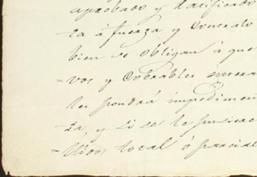 aprobado y ratificado
ta á fuerza y consento
bien se obligan á que
vos y cobrables
les pondrá impedimen
ta, y si se le pusiere
total ó parcial